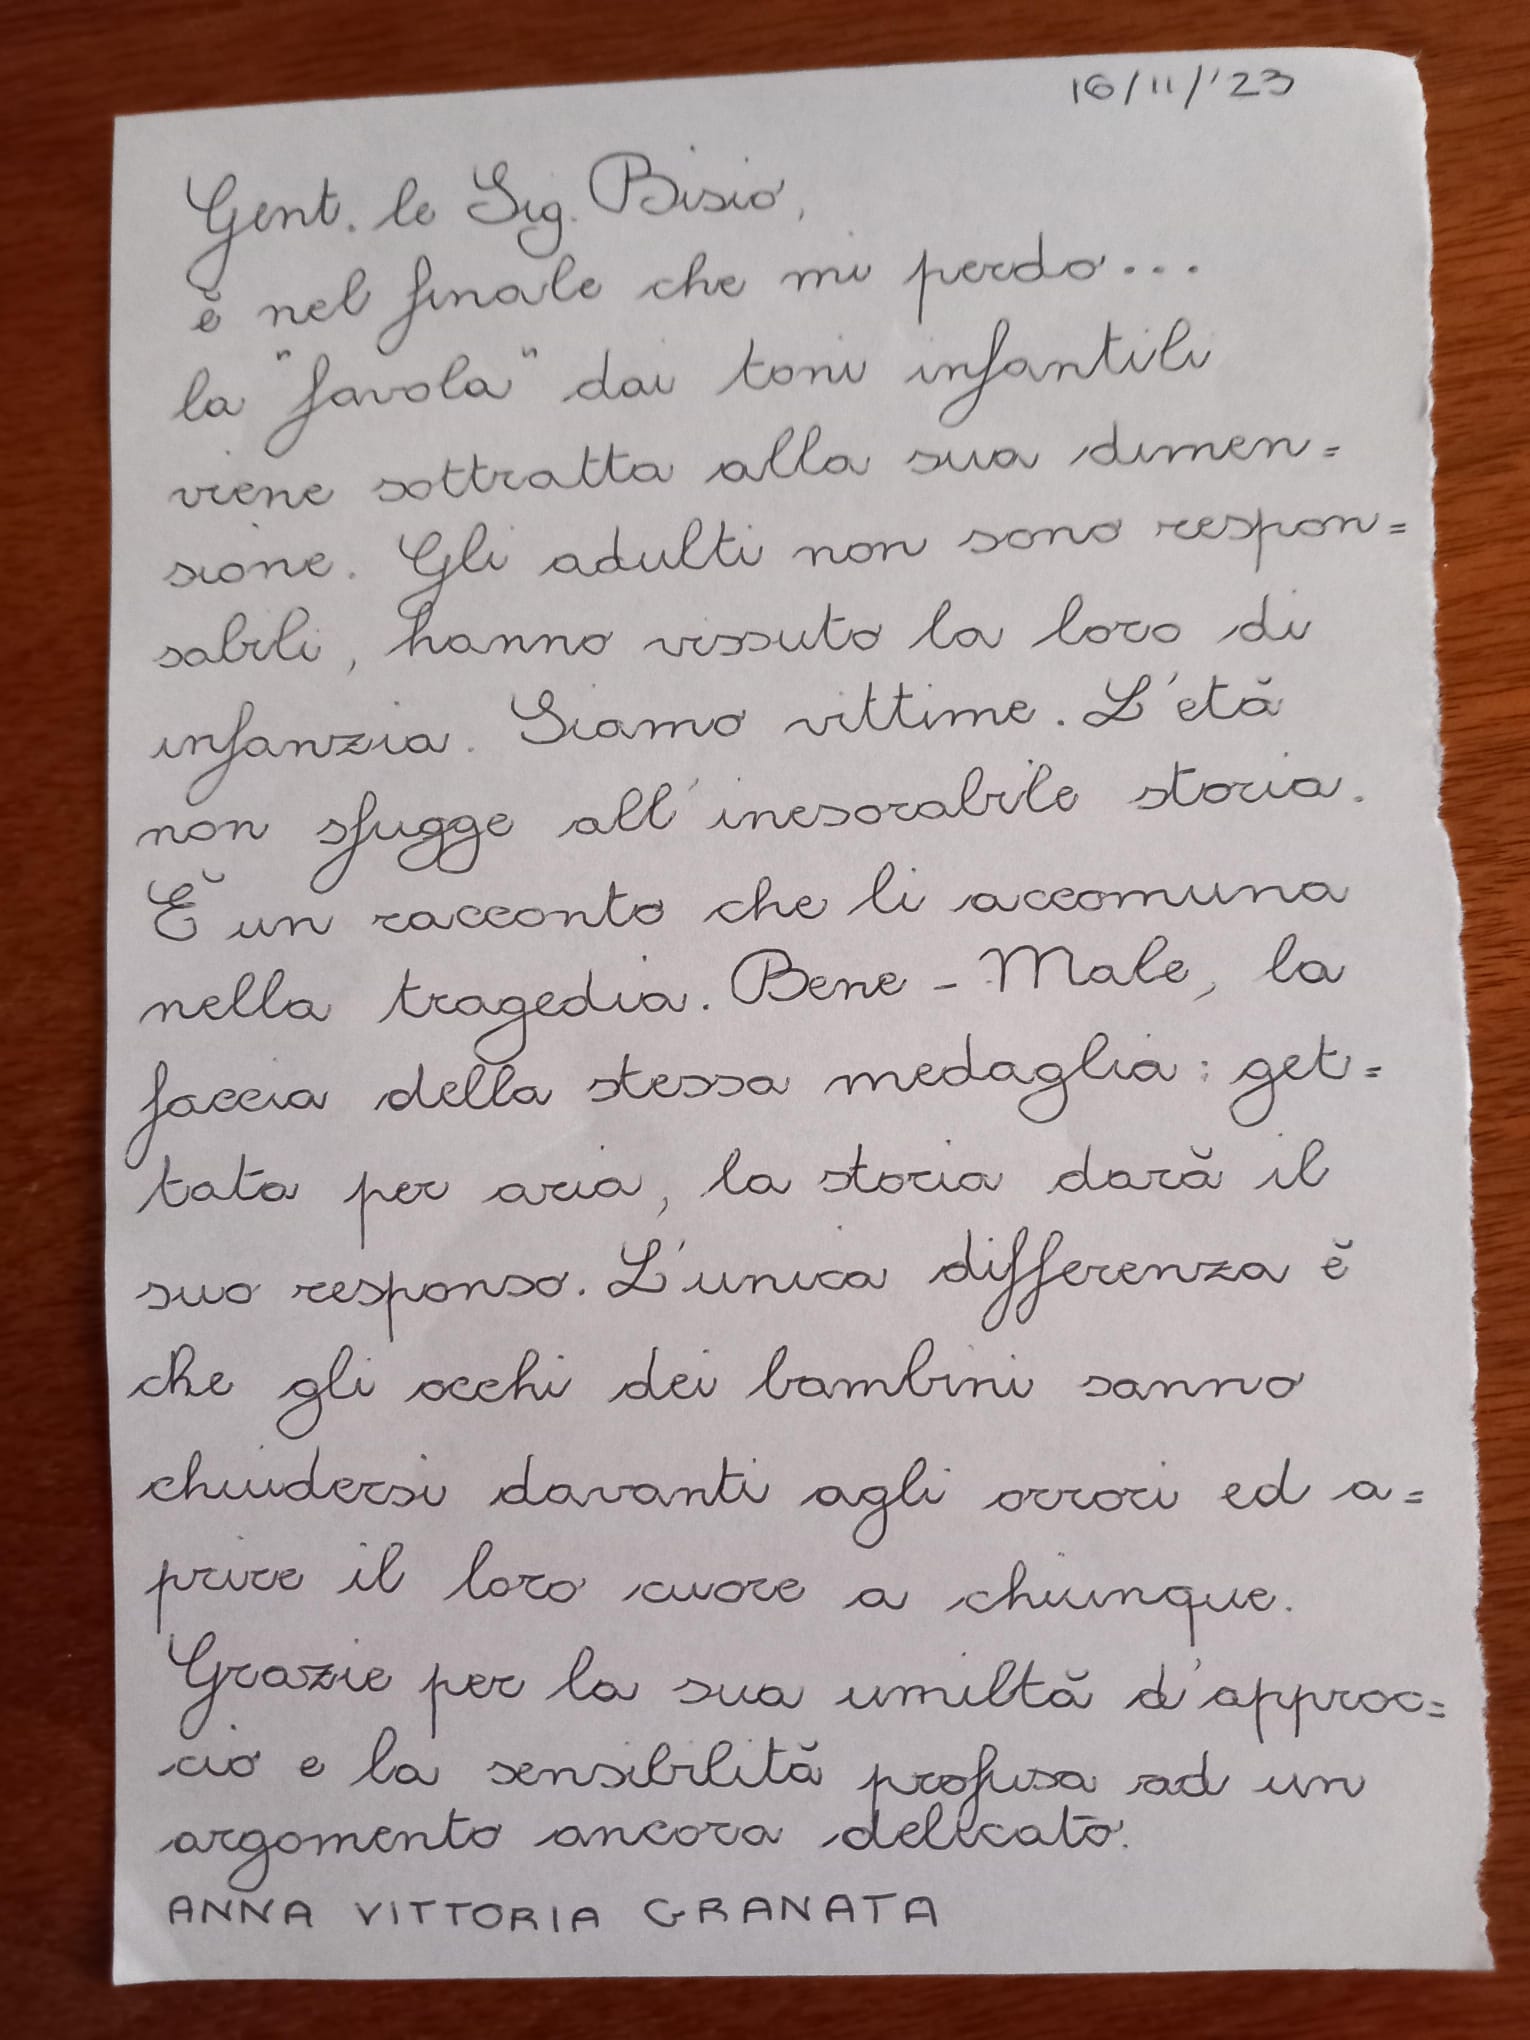 16/11/'23
Gent.le Sig. Bisio,
è nel finale che mi perdo...
la "favola" dai toni infantili
viene sottratta alla sua dimen=
sione. Gli adulti non sono respon=
sabili, hanno vissuto la loro di
infanzia. Siamo vittime. L'età
non sfugge all'inesorabile storia.
È un racconto che li accomuna
nella tragedia. Bene - Male, la
faccia della stessa medaglia: get=
tata per aria, la storia darà il
suo responso. L'unica differenza è
che gli occhi dei bambini sanno
chiudersi davanti agli orrori ed a=
prire il loro cuore a chiunque.
Grazie per la sua umiltà d'approc=
cio e la sensibilità profusa ad un
argomento ancora delicato.
ANNA VITTORIA GRANATA